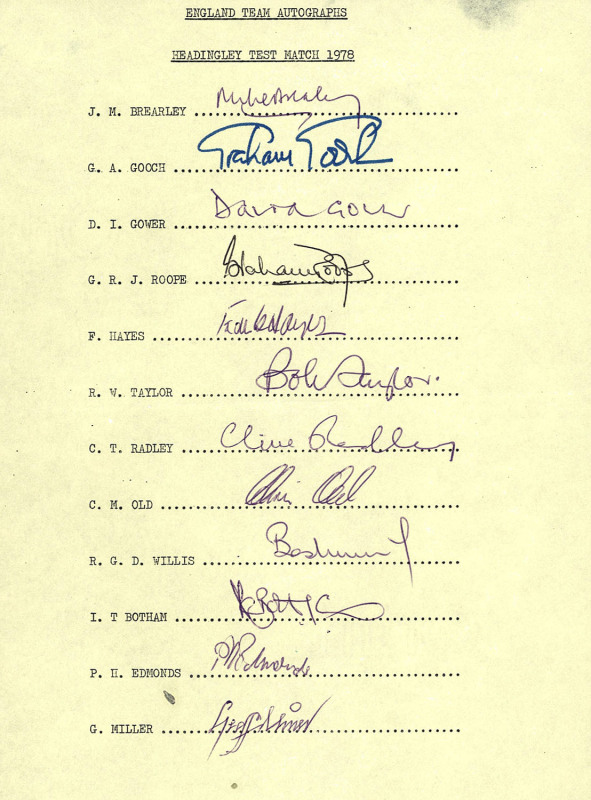 ENGLAND TEAM AUTOGRAPHS
HEADINGLEY TEST MATCH 1978
J. M. BREARLEY Mike Brearley
G. A. GOOCH Graham Gooch
D. I. GOWER David Gower
G. R. J. ROOPE Graham Roope
F. HAYES
R. W. TAYLOR Bob Taylor.
C. T. RADLEY Clive Radley
C. M. OLD Chris Old
R. G. D. WILLIS
I. T BOTHAM
P. H. EDMONDS
G. MILLER Geoff Miller